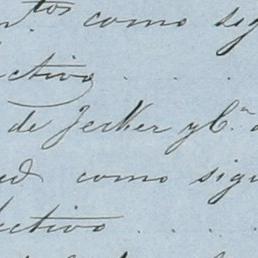 como sig
ectivo . . .
de Jecker y Cª
ed como sigu
ectivo . . . .